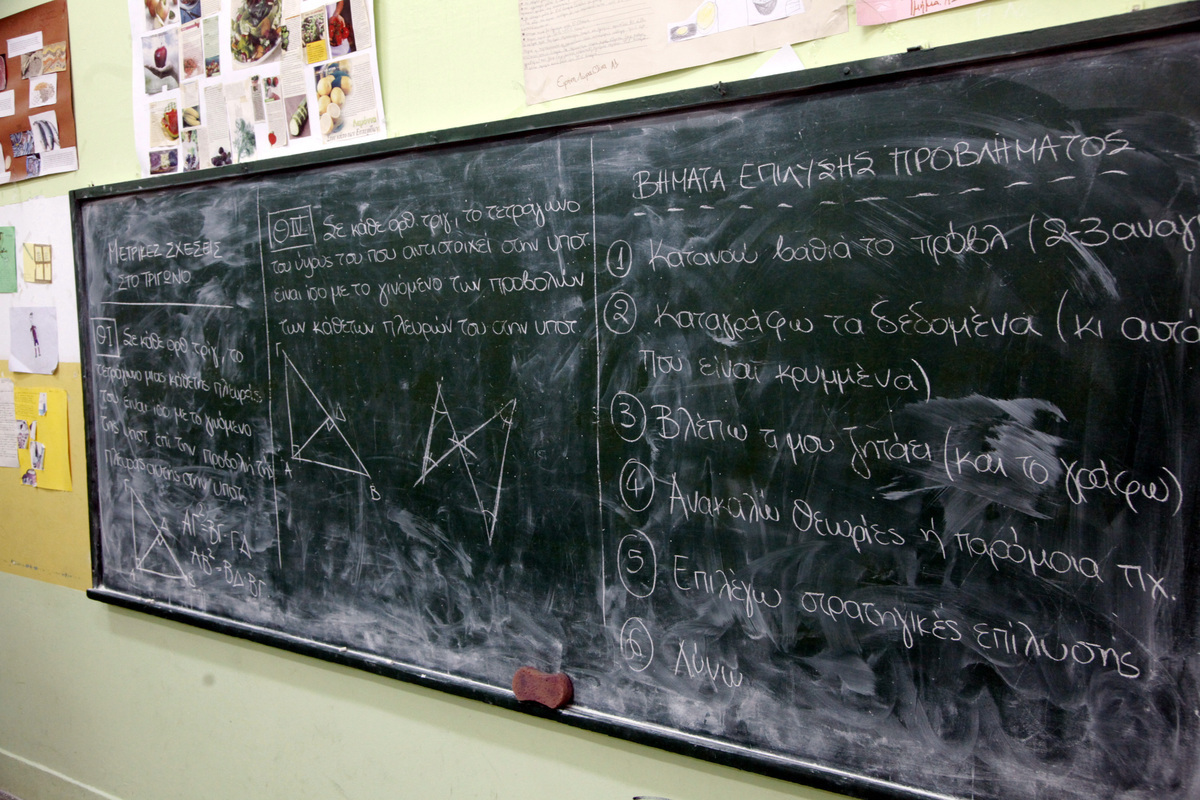 ΜΕΤΡΙΚΕΣ ΣΧΕΣΕΙΣ
ΣΤΟ ΤΡΙΓΩΝΟ
ΘΙ Σε κάθε ορθ. τριγ, το
τετράγωνο μιας κάθετης πλευράς
του είναι ίσο με το γινόμενο
της υποτ. επί την προβολή της
πλευράς αυτής στην υποτ.
ΑΓ²=ΒΓ·ΓΔ
ΑΒ²=ΒΔ·ΒΓ
Α
ΘΙΙ Σε κάθε ορθ. τριγ, το τετράγωνο
του ύψους του που αντιστοιχεί στην υποτ.
είναι ίσο με το γινόμενο των προβολών
των κάθετων πλευρών του στην υποτ.
Γ
Δ
Α
Β
ΒΗΜΑΤΑ ΕΠΙΛΥΣΗΣ ΠΡΟΒΛΗΜΑΤΟΣ
1 Κατανοώ βαθιά το πρόβλ (2-3 αναγ
2 Καταγράφω τα δεδομένα (κι αυτά
που είναι κρυμμένα)
3 Βλέπω τι μου ζητάει (και το γράφω)
4 Ανακαλώ θεωρίες ή παρόμοια πχ.
5 Επιλέγω στρατηγικές επίλυσής
6 Λύνω